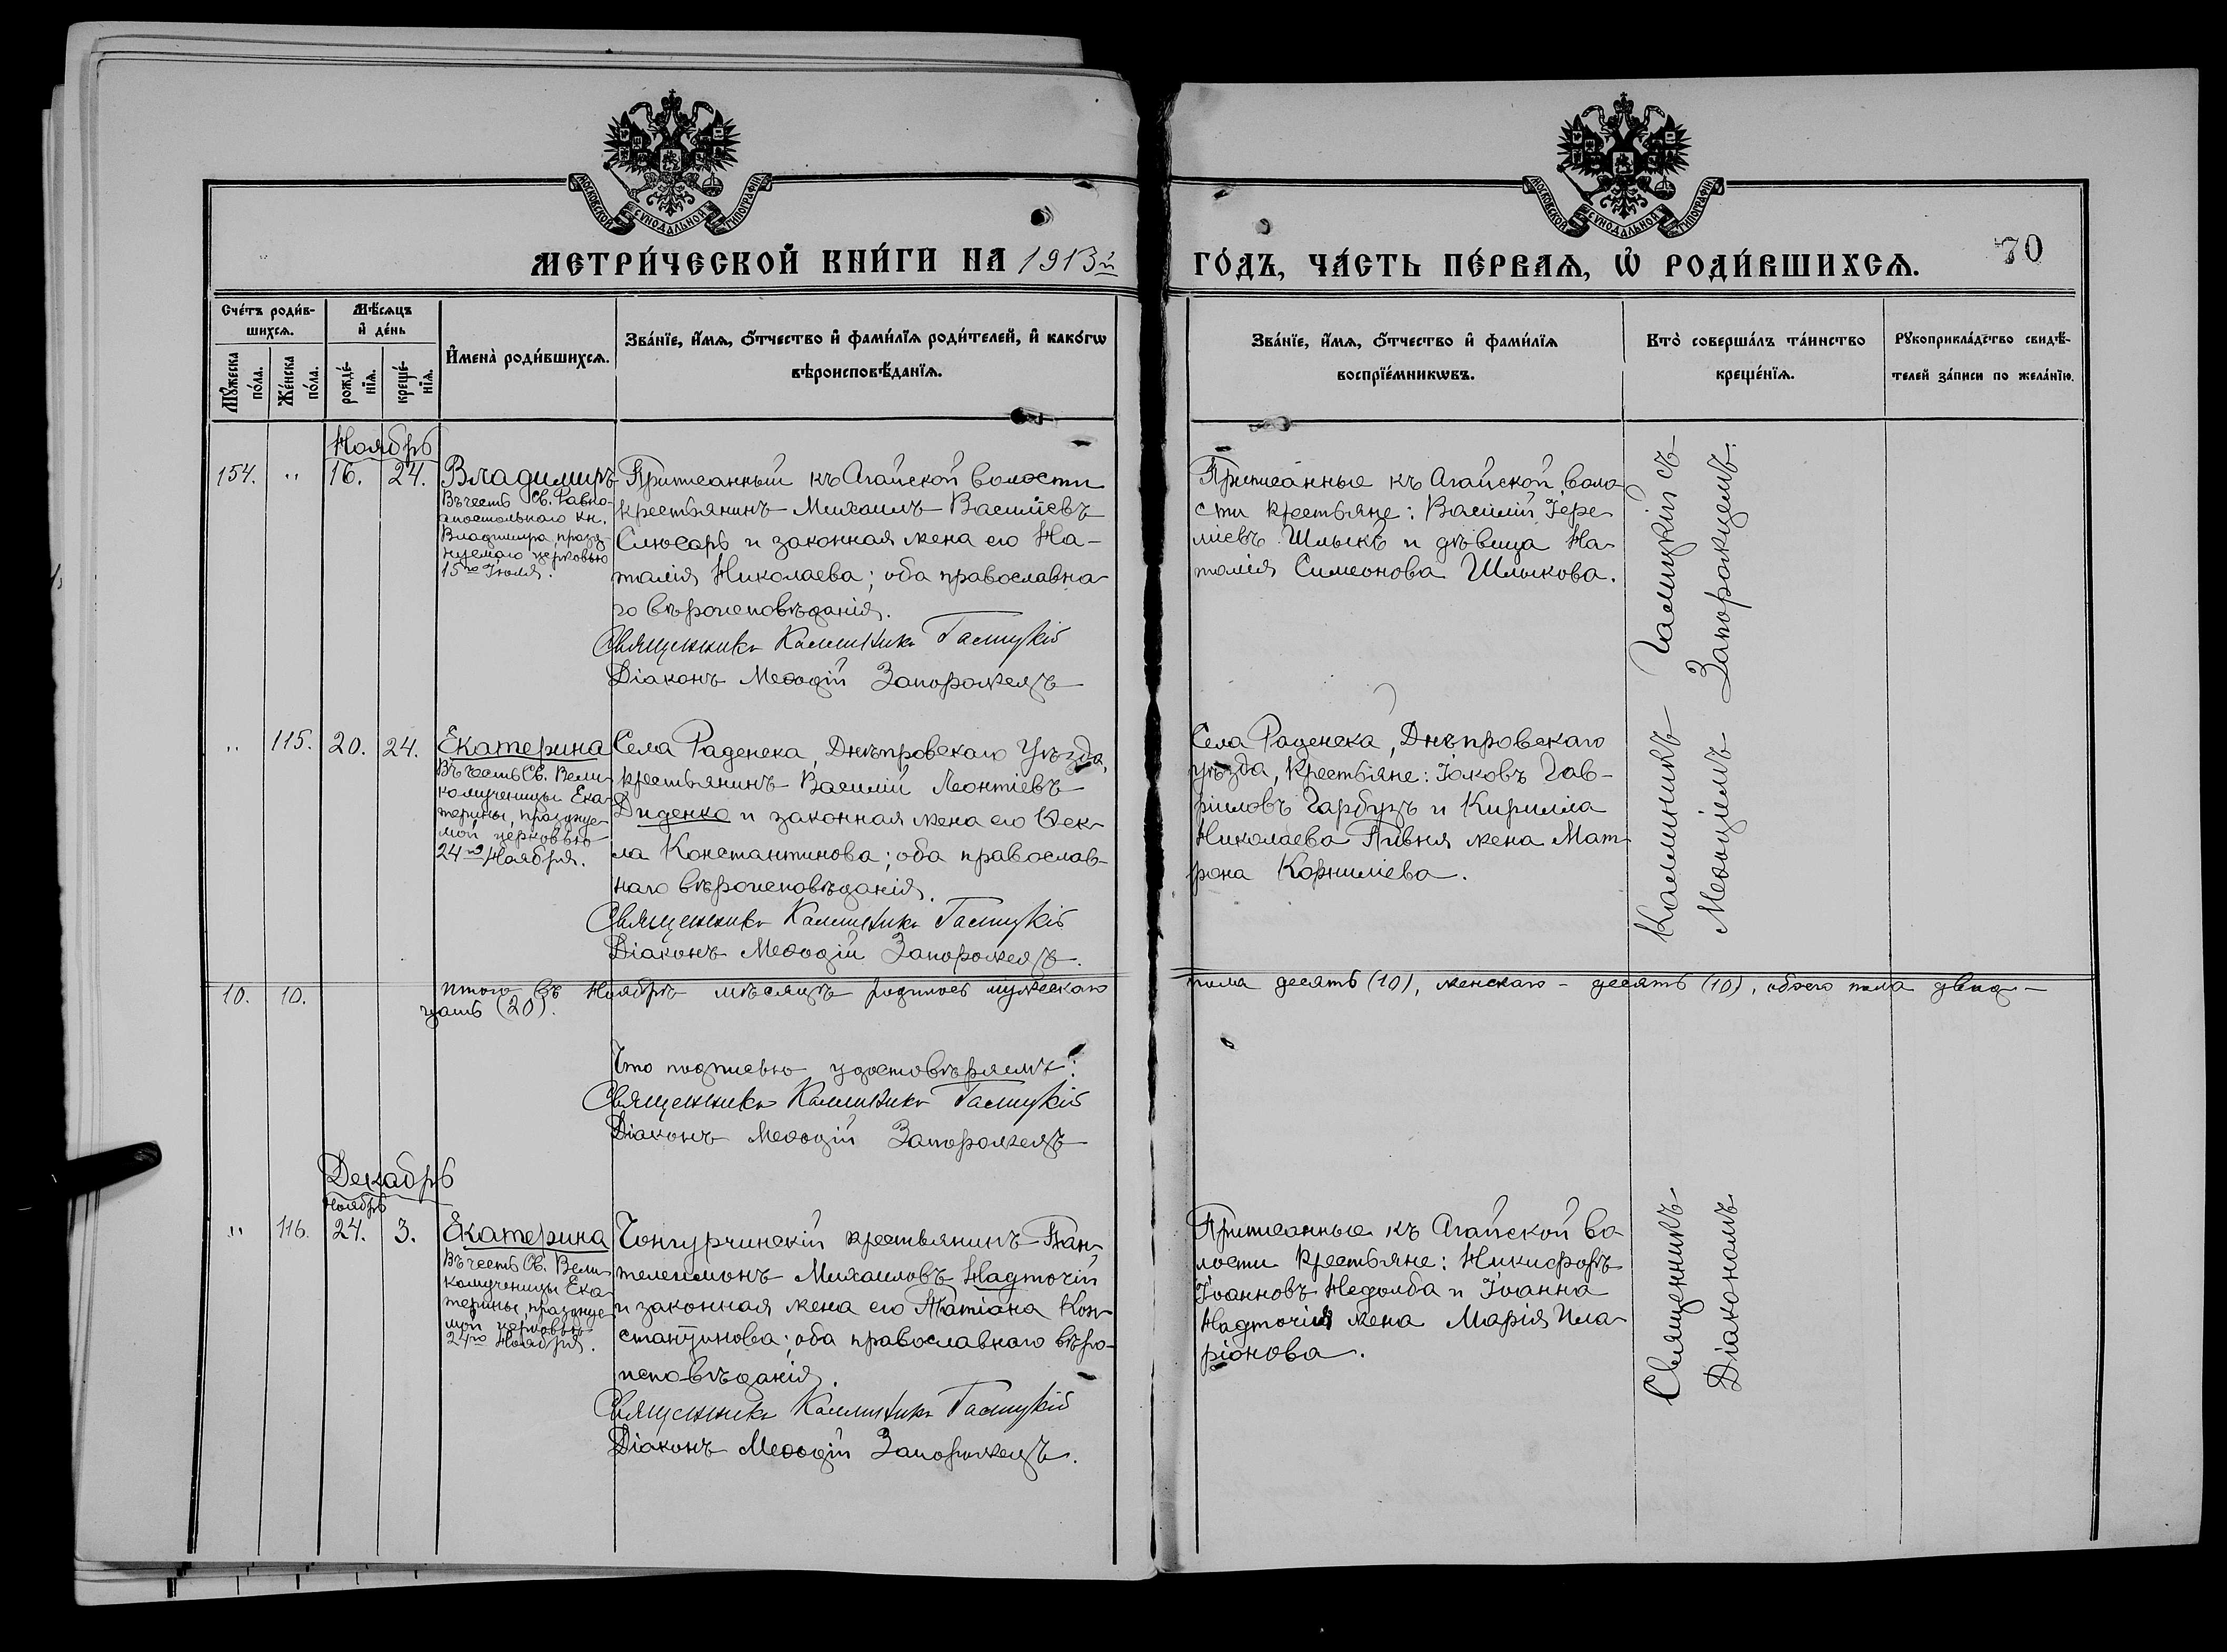 МОСКОВСКОЙ СѴНОДАЛЬНОЙ ТИПОГРАФІИ
МОСКОВСКОЙ СѴНОДАЛЬНОЙ ТИПОГРАФІИ
МЕТРИ́ЧЕСКОЙ КНИ́ГИ НА 1913й
ГО́ДЪ, ЧА́СТЬ ПЕ́РВАѦ, Ѡ҆ РОДИ́ВШИХСѦ.
70
Сче́тъ роди́в-
шихсѧ.
Мѣ́сѧцъ
и҆ де́нь
Мꙋ́жеска
по́ла.
Же́нска
по́ла.
рожде́-
нїѧ.
креще́-
нїѧ.
И҆мена̀ роди́вшихсѧ.
Зва́нїе, и҆́мѧ, ѻ҆́тчество и҆ фами́лїѧ роди́телей, и҆ како́гѡ
вѣроисповѣ́данїѧ.
Зва́нїе, и҆́мѧ, ѻ҆́тчество и҆ фами́лїѧ
воспрїе́мникѡвъ.
Кто̀ соверша́лъ та́инство
креще́нїѧ.
Рꙋкоприкла́дство свидѣ́-
телей за́писи по жела́нїю.
Ноябрь
154. „ 16. 24. Владимиръ
Въ честь Св. Равно-
апостольнаго кн.
Владимира, празд-
нуемаго церковью
15го Іюля.
Приписанный къ Агайской волости
крестьянинъ Михаилъ Василіевъ
Слюсарь и законная жена его На-
талія Николаева; оба православна-
го вѣроисповѣданія.
Священникъ Каллиникъ Галицкій
Діаконъ Меѳодій Запорожецъ
Приписанные къ Агайской воло-
сти крестьяне: Василій
Шлыкъ и дѣвица На-
талія Симеонова Шлыкова.
„ 115. 20. 24. Екатерина
Въ честь Св. Вели-
комученицы Ека-
терины, празднуе-
мой церковью
24го Ноября.
Села Раденска, Днѣпровскаго уѣзда,
крестьянинъ Василій Леонтіевъ
Диденко и законная жена его Ѳек-
ла Константинова; оба православ-
наго вѣроисповѣданія.
Священникъ Каллиникъ Галицкій
Діаконъ Меѳодій Запорожецъ.
Села Раденска, Днѣпровскаго
уѣзда, крестьяне: Іаковъ Гав-
ріиловъ Гарбузъ и Кирилла
Николаева Пивня жена Мат-
рона Корниліева.
10. 10. Итого въ Ноябрѣ мѣсяцѣ родилось мужескаго
пола десять (10), женскаго - десять (10), обоего пола двад-
цать (20).
Что подписью удостовѣряемъ:
Священникъ Каллиникъ Галицкій
Діаконъ Меѳодій Запорожецъ
Декабрь
Ноябрь
„ 116. 24. 3. Екатерина
Въ честь Св. Вели-
комученицы Ека-
терины, празднуе-
мой церковью
24го Ноября.
Чонгурчинскій крестьянинъ Пан-
телеимонъ Михаиловъ Надточій
и законная жена его Татіана Кон-
стантинова; оба православнаго вѣро-
исповѣданія.
Священникъ Каллиникъ Галицкій
Діаконъ Меѳодій Запорожецъ.
Приписанные къ Агайской во-
лости крестьяне: Никифоръ
Іоанновъ Недолба и Іоанна
Надточія жена Марія Ила-
ріонова.
Священникъ Каллиникъ Галицкій съ
Діакономъ Меѳодіемъ Запорожцемъ.